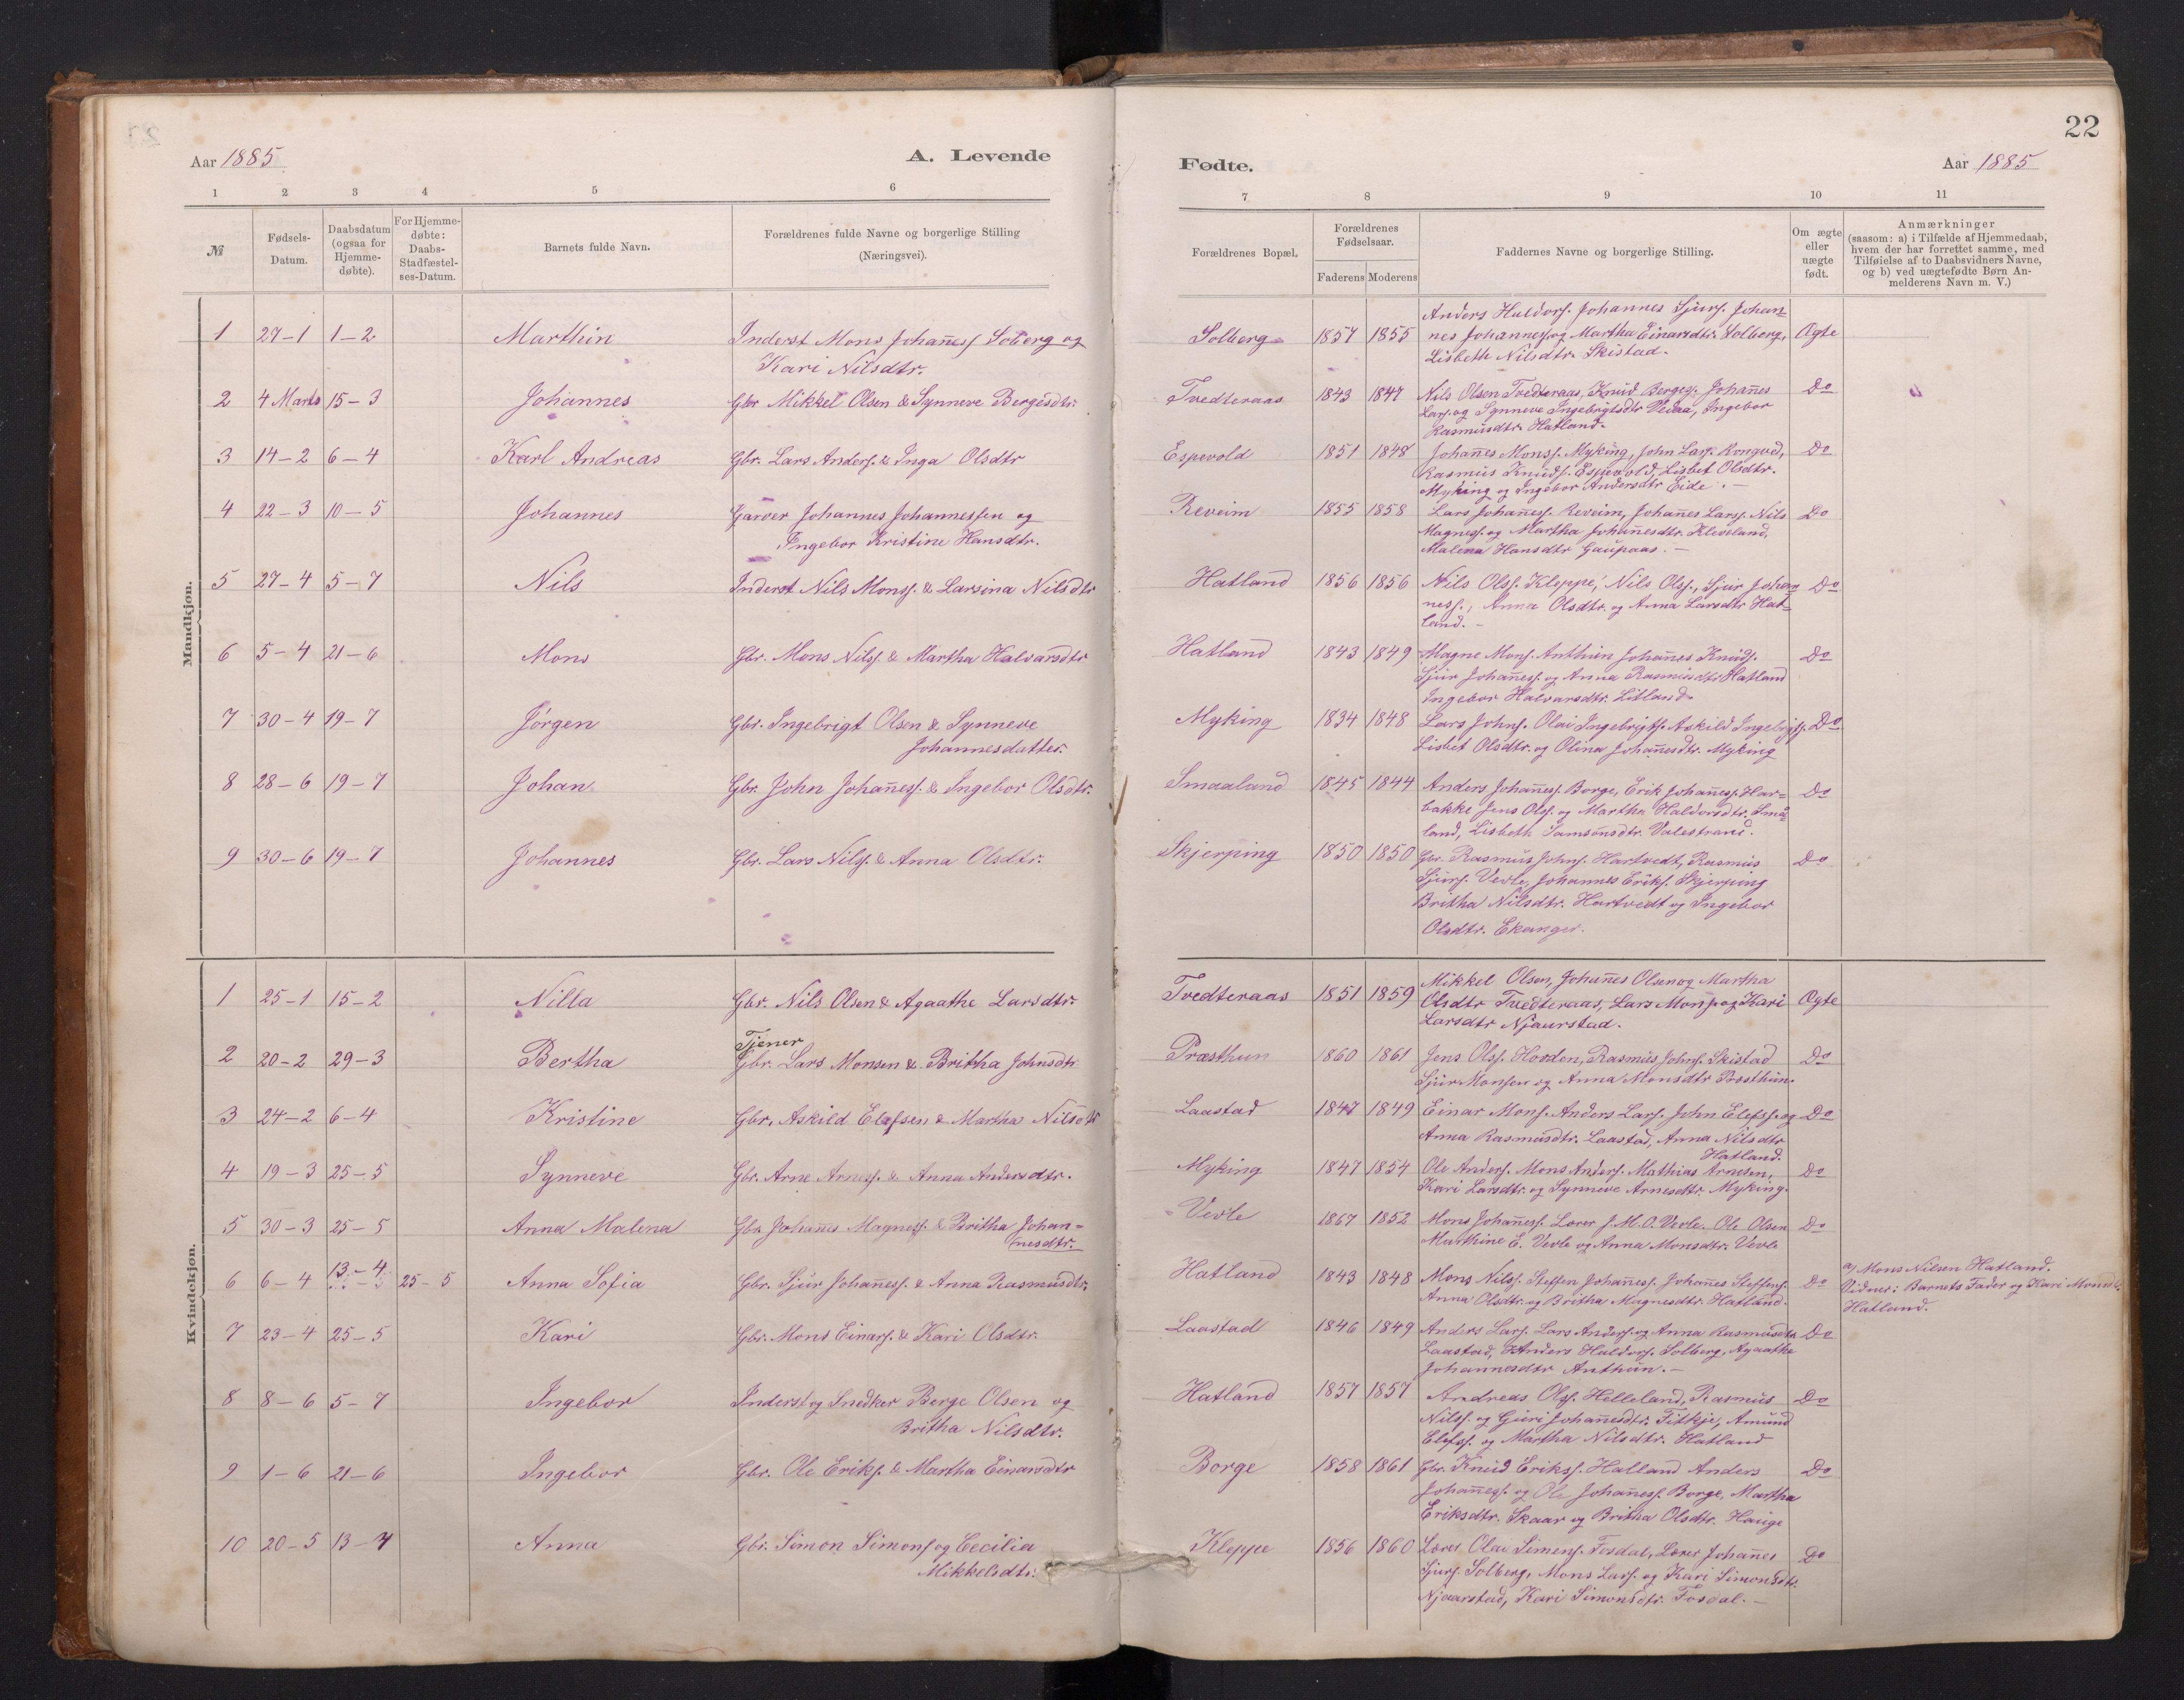 22
Aar 1885
A. Levende
Fødte.
Aar 1885
1 2 3 4 5 6 7 8 9 10 11
№
Fødsels-
Datum.
Daabsdatum
(ogsaa for
Hjemme-
døbte).
For Hjemme-
døbte:
Daabs-
Stadfæstel-
ses-Datum.
Barnets fulde Navn.
Forældrenes fulde Navne og borgerlige Stilling
(Næringsvei).
Forældrenes Bopæl.
Forældrenes
Fødselsaar.
Faderens Moderens
Faddernes Navne og borgerlige Stilling.
Om ægte
eller
uægte
født.
Anmærkninger
(saasom: a) i Tilfælde af Hjemmedaab,
hvem der har forrettet samme, med
Tilføielse af to Daabsvidners Navne,
og b) ved uægtefødte Børn An-
melderens Navn m. V.)
Mandkjøn.
1 27-1 1-2 Marthin Inderst Mons Johañess Solberg og
Kari Nilsdtr.
Solberg 1857 1855
Anders Haldors. Johannes Sjurs. Johan-
nes Johanness og Martha Einarsdtr. Solberg,
Lisbeth Nilsdtr. Skistad.
Ægte
2 4 Marts 15-3 Johannes Gbr Mikkel Olsen & Synneve Bergesdtr.
Tvedteraas 1843 1847
Nils Olsen Tvedteraas, Knud Berges. Johañes
Lars. og Synneve Ingebrigtsdtr Vedaa, Ingebor
Rasmusdtr. Hatland.
Do
3 14-2 6-4 Karl Andreas Gbr. Lars Anders. & Inga Olsdtr
Espevold 1851 1848
Johañes Monss. Myking, John Lars. Rongved,
Rasmus Knuds. Espevold, Lisbet Olsdtr.
Myking og Ingebor Andersdtr Eide.-
Do
4 22-3 10-5 Johannes Garver Johannes Johannessen og
Ingebor Kristine Hansdtr.
Reveim 1855 1858
Lars Johañess. Reveim, Johañes Larss. Nils
Magness. og Martha Johañesdtr. Kleveland,
Malena Hansdtr Gaupaas.-
Do
5 27-4 5-7 Nils Inderst Nils Monss. & Larsina Nilsdtr
Hatland 1856 1856
Nils Olss. Kleppe, Nils Olss., Sjur Johan
ness., Anna Olsdtr. og Anna Larsdtr Hat-
land.-
Do
6 5-4 21-6 Mons Gbr. Mons Nilss. & Martha Halvarsdtr
Hatland 1843 1849
Magne Mons. Anthun Johañes Knuds.
Sjur Johañess. og Anna Rasmusdtr Hatland
Ingebor Halvarsdtr. Litland.
Do
7 30-4 19-7 Jørgen Gbr. Ingebrigt Olsen & Synneve
Johannesdatter.
Myking 1834 1848
Lars Johns. Olai Ingebrigts. Askild Ingebrigts.
Lisbet Olsdtr. og Olina Johañesdtr. Myking
Do
8 28-6 19-7 Johan Gbr. John Johañess. & Ingebor Olsdtr.
Smaaland 1845 1844
Anders Johañess. Borge, Erik Johañess. Har-
bakke Jens Olss. og Martha Haldorsdtr. Små-
land, Lisbeth Samsonsdtr. Valestrand.
Do
9 30-6 19-7 Johannes Gbr. Lars Nilss. & Anna Olsdtr.
Skjerping 1850 1850
Gbr. Rasmus Johns. Hartvedt, Rasmus
Sjurs. Vevle, Johannes Eriks. Skjerping
Britha Nilsdtr. Hartvedt og Ingebor
Olsdtr. Ekanger.
Do
Kvindekjøn.
1 25-1 15-2 Nilla Gbr. Nils Olsen & Agaathe Larsdtr.
Tvedteraas 1851 1859
Mikkel Olsen, Johañes Olsen og Martha
Olsdtr Tvedteraas, Lars Mons. og Kari
Larsdtr Njaurstad.
Ægte
2 20-2 29-3 Bertha Tjener
Gbr. Lars Monsen & Britha Johnsdtr.
Præsthun 1860 1861
Jens Olss. Hosden, Rasmus Johns. Skistad
Sjur Monsen og Anna Monsdtr Prosthun.
Do
3 24-2 6-4 Kristine Gbr. Askild Elefsen & Martha Nilsdtr
Laastad 1847 1849
Einar Mons. Anders Lars. John Elefss. og
Anna Rasmusdtr. Laastad, Anna Nilsdtr
Hatland.
Do
4 19-3 25-5 Synneve Gbr. Arne Arness. & Anna Andersdtr.
Myking 1847 1854
Ole Anders. Mons Anders. Mathias Arnesen,
Kari Larsdtr. og Synneve Arnesdtr. Myking.
Do
5 30-3 25-5 Anna Malena Gbr. Johañes Magness. & Britha Johan-
nesdtr.
Vevle 1867 1852
Mons Johañess. Lærer J. M. O. Vevle. Ole Olsen
Marthine E. Vevle og Anna Monsdtr. Vevle
Do
6 6-4 13-4 25-5 Anna Sofia Gbr. Sjur Johañess. & Anna Rasmusdtr.
Hatland 1843 1848
Mons Nilss. Steffen Johañess. Johañes Steffens.
Anna Olsdtr. og Britha Magnesdtr. Hatland.
Do
a) Mons Nilsen Hatland.
Vidner: Barnets Fader og Kari Monsdtr.
Hatland.
7 23-4 25-5 Kari Gbr. Mons Einars. & Kari Olsdtr.
Laastad 1846 1849
Anders Lars. Lars Anders. og Anna Rasmusdtr
Laastad, Anders Haldors. Solberg, Agaathe
Johannesdtr Anthun.-
Do
8 8-6 5-7 Ingebor Inderst og Snedker Berge Olsen og
Britha Nilsdtr.
Hatland 1857 1857
Andreas Olss. Helleland, Rasmus
Nilss. og Guri Johañesdtr. Titkje, Amund
Elefss. og Martha Nilsdtr. Hatland
Do
9 1-6 21-6 Ingebor Gbr. Ole Eriks. & Martha Einarsdtr
Borge 1858 1861
Gbr. Knud Erikss. Halland Anders
Johañess. og Ole Johañess. Borge, Martha
Eriksdtr. Skaar og Britha Olsdtr. Hauge
Do
10 20-5 13-7 Anna Gbr. Simon Simons. og Cecilia
Mikkelsdtr.
Kleppe 1856 1860
Lærer Olai Simens. Fosdal, Lærer Johañes
Sjurs. Solberg, Mons Lars. og Kari Simonsdtr.
Njaarstad, Kari Simonsdtr. Fosdal.-
Do